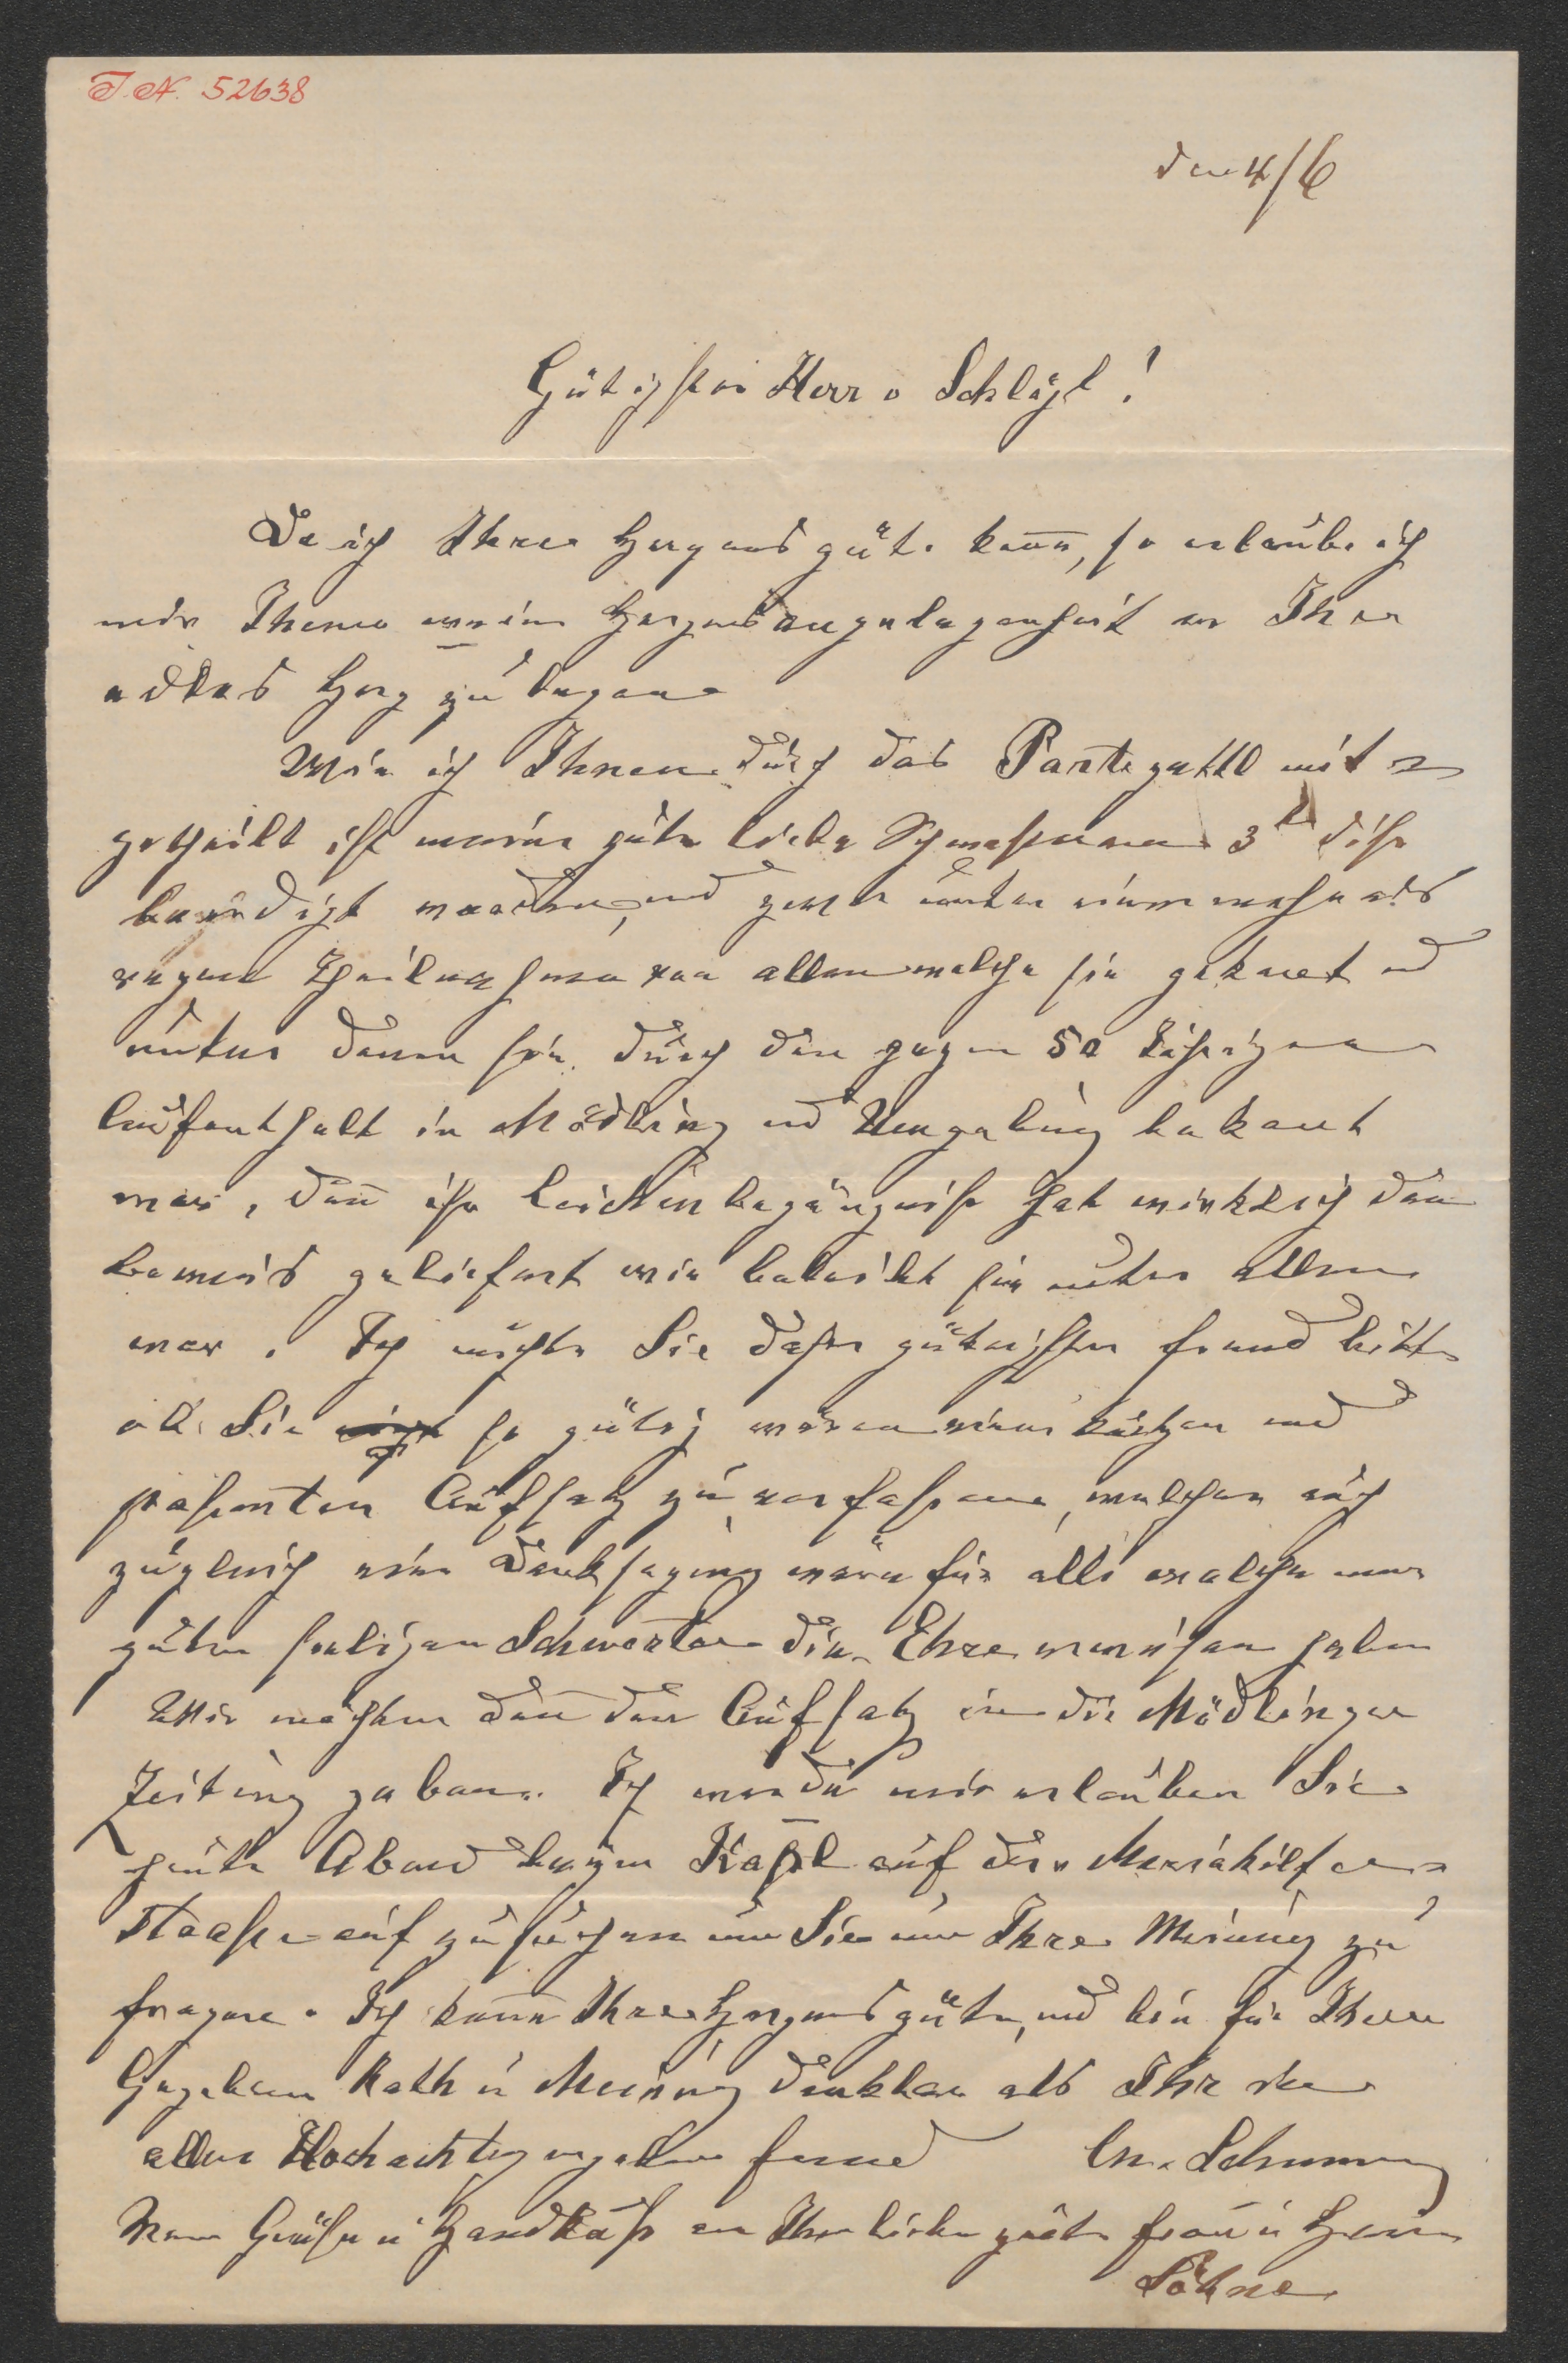 I. N. 52638
den 4/6
Gütigster Herr v Schlögl!
Da ich Ihre Herzensgüte kenn̄, so erlaube ich
mir Ihnen meine Herzensangelegenheit an Ihr
edles Herz zu legen
Wie ich Ihnen durch das Partezettl mit=
getheilt ist meine gute liebe Schwester am 3t diss
beerdigt worden, und zwar unter einem mehr als
regen Theilnehmen von allen welche sie gekant ud
unter denen sie durch den gegen 50 Jährigen
Aufenthalt in Mödling ud Umgebung bekant
war, den̄ ihr Leichenbegängniss hat wirklich den
beweis geliefert wie beliebt sie unter allen
war. Ich möchte Sie daher gütigster freund bitten
ob Sie nicht so gütig wären einen kurtzen und
passenten Aufsatz zu verfassen, welcher auch
zugleich eine Danksagung wäre für alle welche unser
guten seeligen Schwester die Ehre erwiesen haben
Wir möchten dan̄ den Aufsatz in die Mödlinger
Zeitung geben. Ich werde mir erlauben Sie
heute Abend beym auf der Mariahilfer=
strasse auf zu suchen um Sie um Ihre Meinung zu
fragen. Ich kenn̄e Ihre Herzensgüte, und bin für Ihren
Gegeben Rath u Meinung dankbar als Ihr sie
aller Hochachtung ergebener freund
Grüsse u Handkuss an Ihre liebe gute frau u Herrn
Söhne